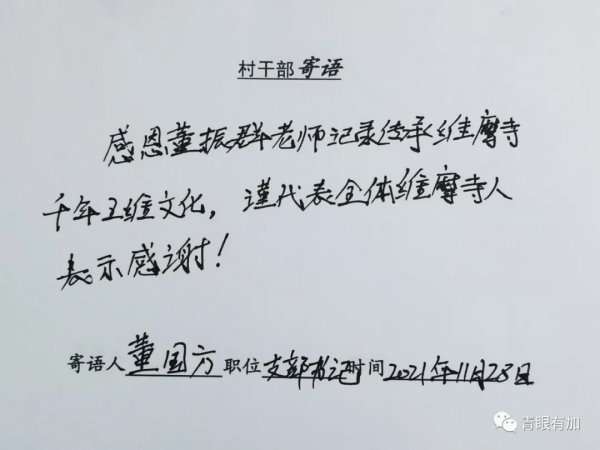 村干部寄语
感恩董振群老师记录传承维摩寺
千年王维文化，谨代表全体维摩寺人
表示感谢！
寄语人董国方职位支部书记时间2021年11月28日
青眼有加